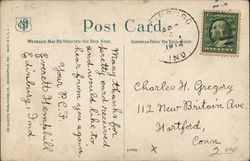 Post Card
MESSAGE MAY BE WRITTEN ON THIS SIDE
ADDRESS ONLY ON THIS SIDE
1912
IND
Many thanks for
pretty card received
and would like to
hear from you again
Your P.C.F.
Everett Hemphill
Ind
Charles H. Gregory
112 New Britain Ave.
Hartford,
Conn